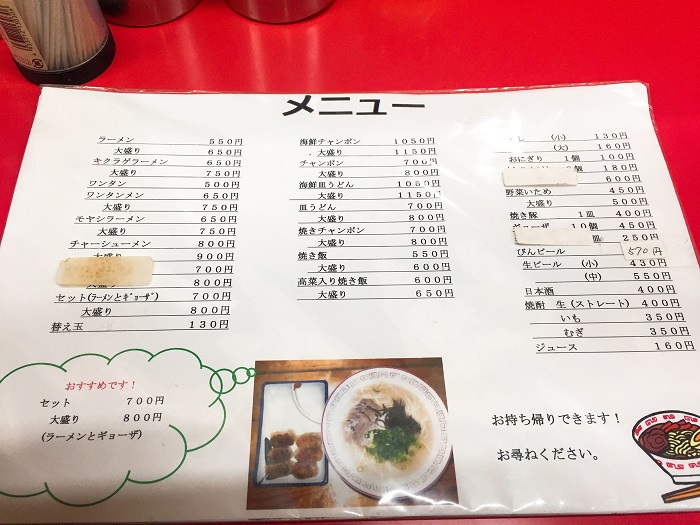 メニュー
ラーメン 550円
大盛り 650円
キクラゲラーメン 650円
大盛り 750円
ワンタン 500円
ワンタンメン 650円
大盛り 750円
モヤシラーメン 650円
大盛り 750円
チャーシューメン 800円
大盛り 900円
700円
800円
セット(ラーメンとギョーザ) 700円
大盛り 800円
替え玉 130円
海鮮チャンポン 1050円
大盛り 1150円
チャンポン 700円
大盛り 800円
海鮮皿うどん 1050円
大盛り 1150円
皿うどん 700円
大盛り 800円
焼きチャンポン 700円
大盛り 800円
焼き飯 550円
大盛り 650円
高菜入り焼き飯 600円
大盛り 650円
(小) 130円
(大) 160円
おにぎり 1個 100円
2個 180円
600円
野菜いため 450円
大盛り 500円
焼き豚 1皿 400円
ギョーザ 10個 450円
皿 250円
びんビール 570円
生ビール (小) 430円
(中) 550円
日本酒 400円
焼酎 生(ストレート) 400円
いも 350円
むぎ 350円
ジュース 160円
おすすめです!
セット 700円
大盛り 800円
(ラーメンとギョーザ)
お持ち帰りできます!
お尋ねください。